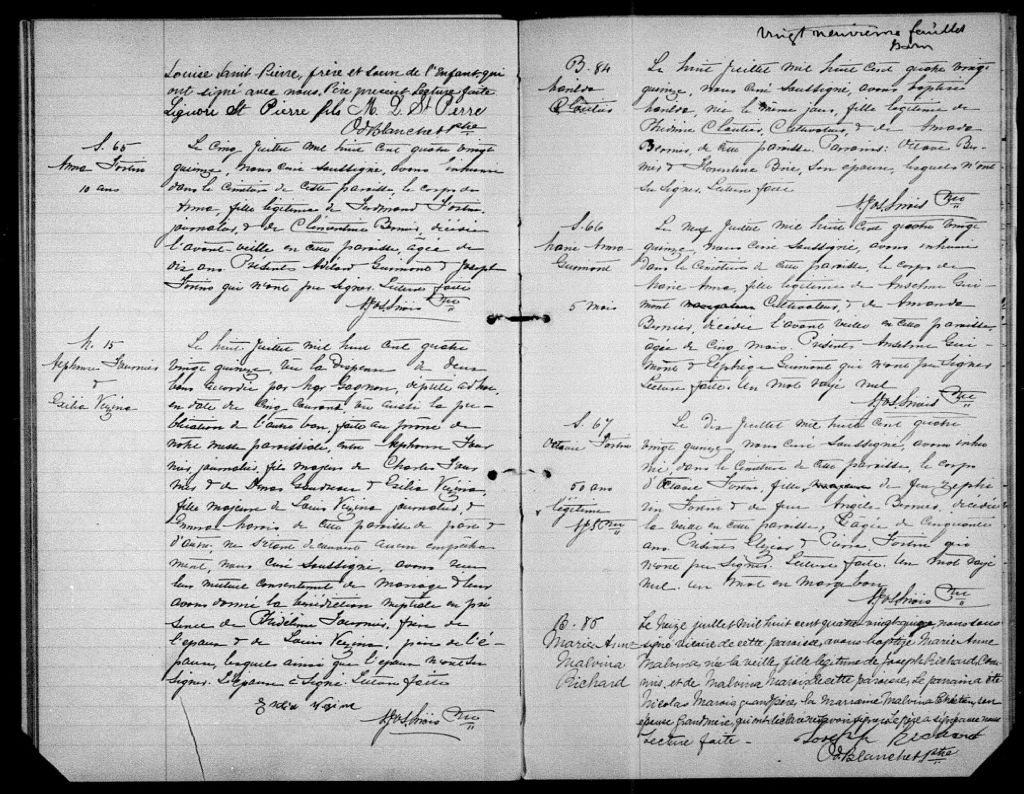 Louise Saint-Pierre, frère et soeur de l'Enfant qui
ont signé avec nous. Père présent Lecture faite
Liguori St Pierre fils M. L. St Pierre
Od Blanchet ptre
S. 65
Anna Fortin
10 ans
Le cinq Juillet mil huit cent quatre vingt
quinze, nous curé soussigné, avons inhumé
dans le cimetière de cette paroisse, le corps de
Anna, fille légitime de Ferdinand Fortin,
journalier, & de Clémentine Bernier, décédée
l'avant-veille en cette paroisse, agée de
dix ans Présents Guimont & Joseph
Fortin qui n'ont pu signer. Lecture faite
M. 15
Alphonse Fournier
&
Exilia Vézina
Le huit Juillet mil huit cent quatre
vingt quinze, vu la Dispense de deux
bans accordée par Mgr Gagnon, député ad hoc,
en date du cinq courant, vu aussi la pu-
blication de l'autre ban, faite au prône de
notre messe paroissiale, entre Alphonse Four-
nier, journalier, fils majeur de Charles Four-
nier & de & Exilia Vézina,
fille majeure de Louis Vézina journalier, &
de cette paroisse de part &
d'autre, ne s'étant découvert aucun empêche-
ment, nous curé soussigné, avons reçu
leur mutuel consentement de mariage & leur
avons donné la bénédiction nuptiale en pré-
sence de Fournier, père de
l'époux & de Louis Vézina, père de l'é-
pouse, lesquels ainsi que l'époux n'ont su
signer. L'épouse a signé. Lecture faite
vingt neuvième feuillet
B. 84
Cloutier
Le huit Juillet mil huit cent quatre vingt
quinze, nous curé soussigné, avons baptisé
née le même jour, fille légitime de
Cloutier, Cultivateur, & de Amanda
Bernier, de cette paroisse. Parrains: Octave Ber-
nier & son épouse, lesquels n'ont
su signer. Lecture faite
S. 66
Marie Anna
Guimont
5 mois
Le neuf Juillet mil huit cent quatre vingt
quinze, nous curé soussigné, avons inhumé
dans le cimetière de cette paroisse, le corps de
Marie Anna, fille légitime de Anselme Gui-
mont Cultivateur, & de Amanda
Bernier, décédée l'avant veille en cette paroisse,
agée de cinq mois Présents Anselme Gui-
mont & Elphège Guimont qui n'ont pu signer
Lecture faite. Un mot rayé nul
S. 67
Octavie Fortin
50 ans
légitime
Le dix Juillet mil huit cent quatre
vingt quinze, nous curé soussigné, avons inhu-
mé, dans le cimetière de cette paroisse, le corps
d'Octavie Fortin, fille de feu Zéphi-
rin Fortin & de feu Angèle Bernier, décédée
la veille en cette paroisse, agée de cinquante
ans Présents Elzéar & Pierre Fortin qui
n'ont pu signer. Lecture faite. Un mot rayé
nul. Un mot en marge bon
B. 85
Marie Anne
Malvina
Richard
Le seize juillet mil huit cent quatre vingt quinze, nous sous
signé vicaire de cette paroisse, avons baptisé Marie Anne
Malvina, née la veille, fille légitime de Joseph Richard, Com-
mis, et de Malvina Marois de cette paroisse. Le parrain a été
Nicolas Marois grand père, la Marraine Malvina
épouse grand mère, qui ont déclaré ne savoir signer. Le père a signé avec nous
Lecture faite - Joseph Richard
Od Blanchet ptre